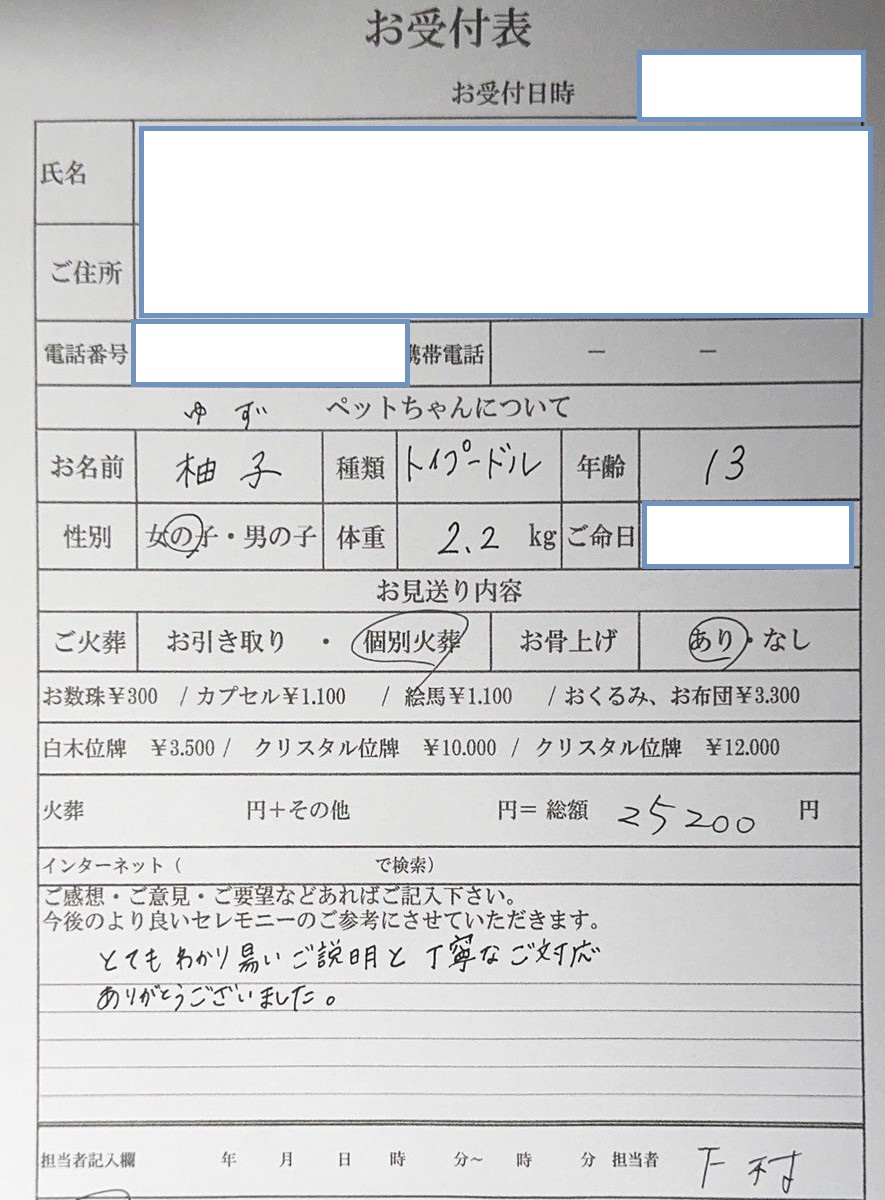 お受付表
お受付日時
氏名
ご住所
電話番号 携帯電話 － －
ゆず ペットちゃんについて
お名前 柚子 種類 トイプードル 年齢 13
性別 女の子・男の子 体重 2.2 kg ご命日
お見送り内容
ご火葬 お引き取り ・ 個別火葬 お骨上げ あり・なし
お数珠￥300 / カプセル￥1.100 / 絵馬￥1.100 / おくるみ、お布団￥3.300
白木位牌 ￥3.500 / クリスタル位牌 ￥10.000 / クリスタル位牌 ￥12.000
火葬 円＋その他 円＝ 総額 25200 円
インターネット（ で検索）
ご感想・ご意見・ご要望などあればご記入下さい。
今後のより良いセレモニーのご参考にさせていただきます。
とてもわかり易いご説明と丁寧なご対応
ありがとうございました。
担当者記入欄 年 月 日 時 分～ 時 分 担当者 下村